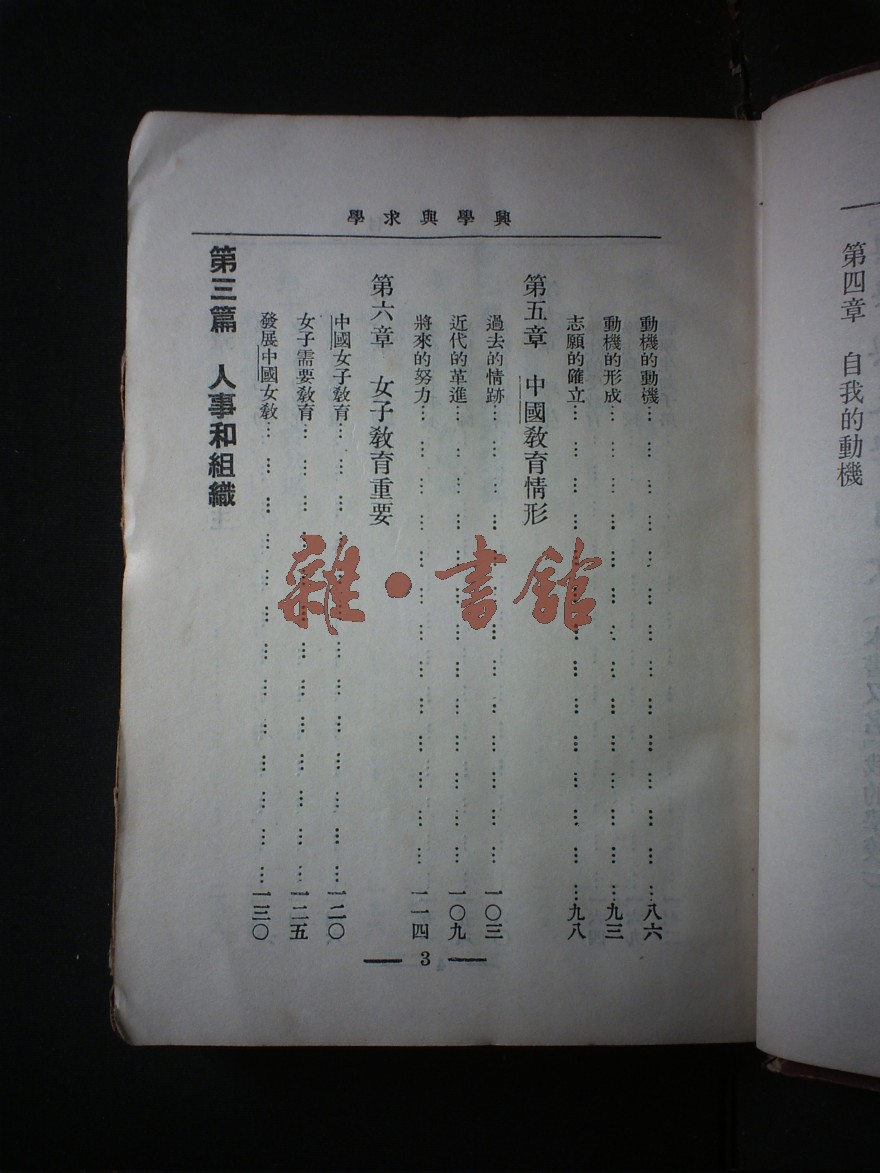 第四章　自我的動機
學求與學興
動機的動機… … … … … … … … … … … …八六
動機的形成… … … … … … … … … … … …九三
志願的確立… … … … … … … … … … … …九八
第五章　中國教育情形
過去的情跡… … … … … … … … … … … …一〇三
近代的革進… … … … … … … … … … … …一〇九
將來的努力… … … … … … … … … … … …一一四
第六章　女子教育重要
中國女子教育… … … … … … … … … … …一二〇
女子需要教育… … … … … … … … … … …一二五
發展中國女教… … … … … … … … … … …一三〇
第三篇　人事和組織
— 3 —
雜·書館